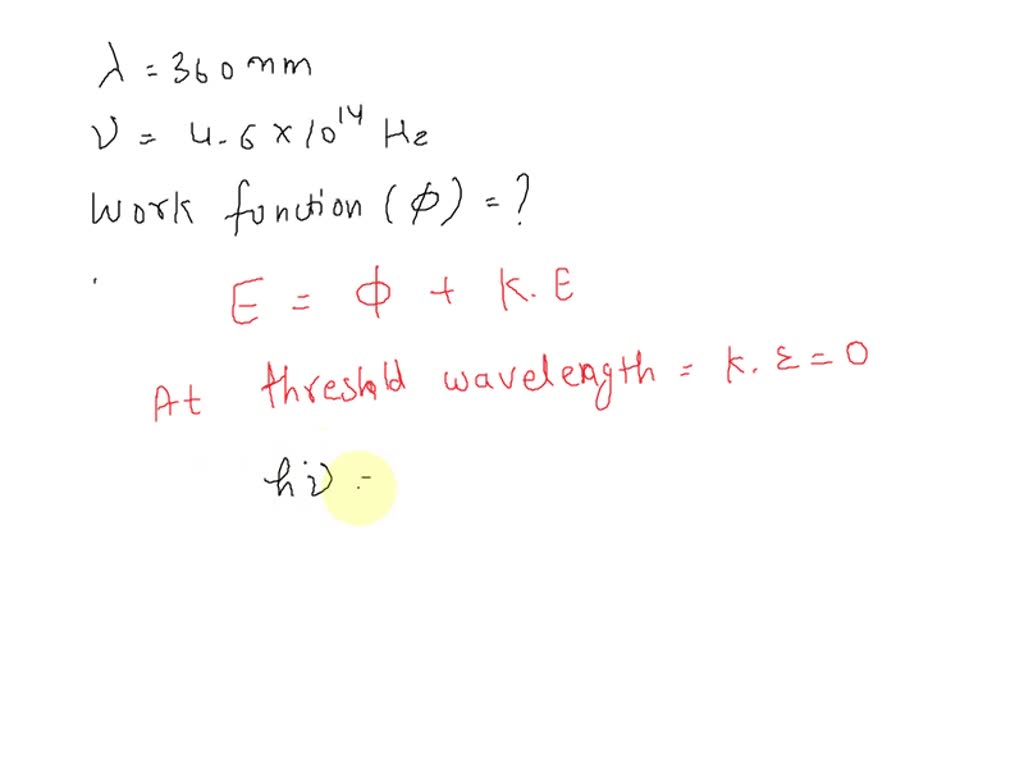 λ = 360 nm
ν = 4.6 × 10¹⁴ Hz
Work function (ϕ) = ?
E = ϕ + K.E
At threshold wavelength = K.E = 0
hν =